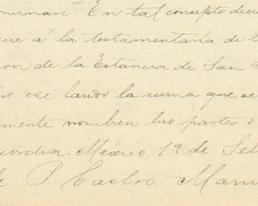 ominaré". En tal concepto decla
á la testamentaría de
on de la Estancia de San
ese laudo la suma que se
mente nombren las partes
cordia. México 19 de Set
P. Castro Manu